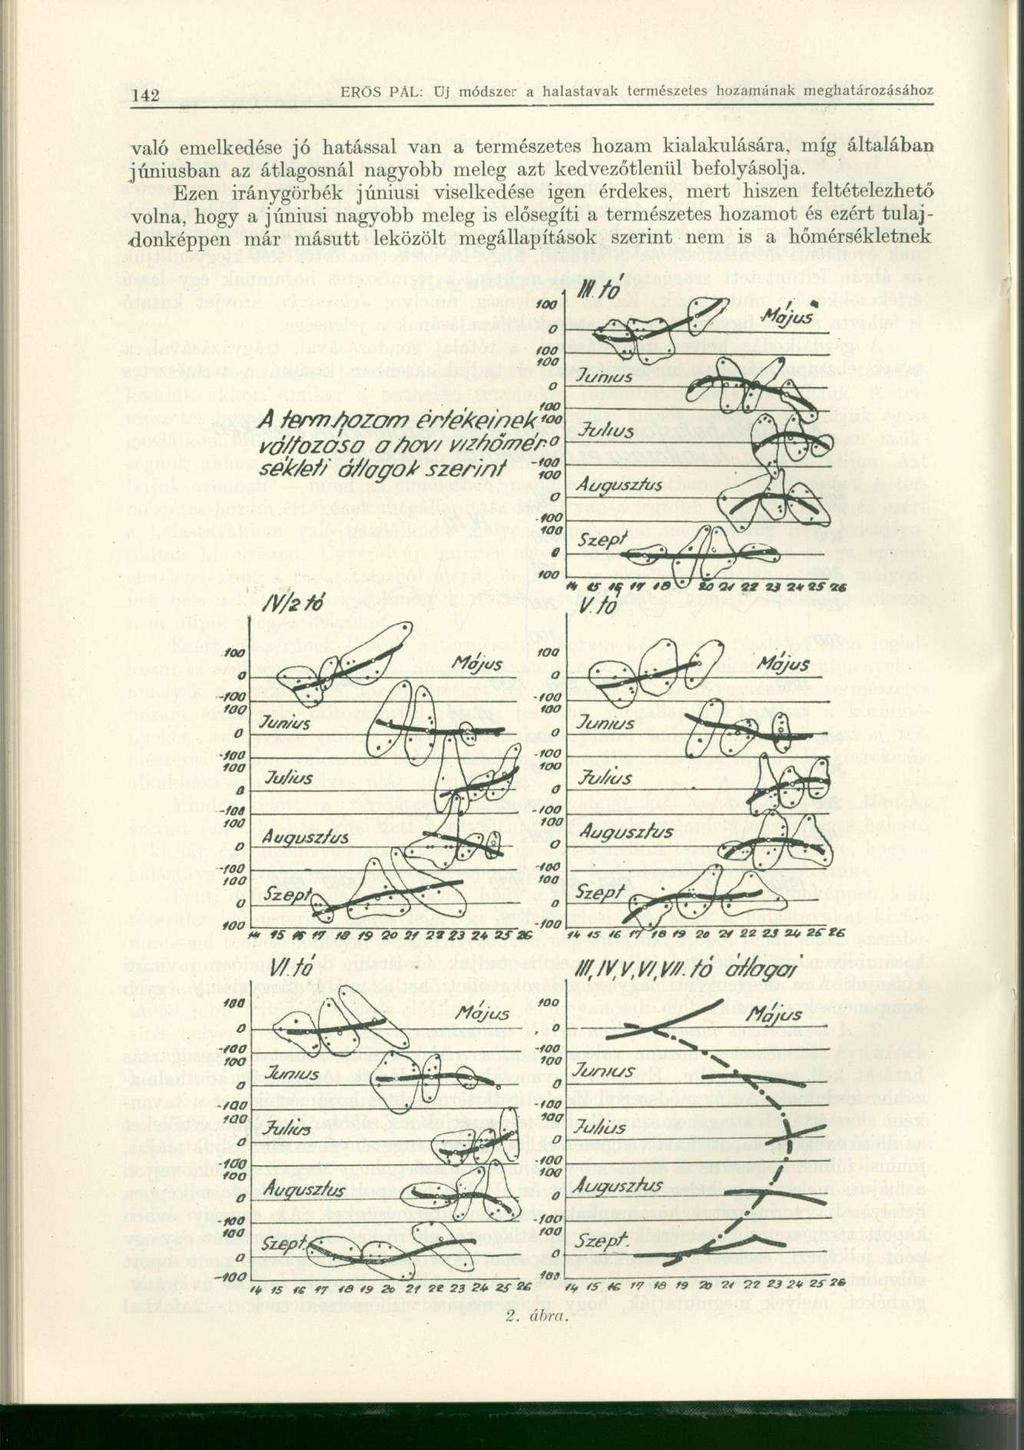 142
ERŐS PÁL: Új módszer a halastavak természetes hozamának meghatározásához
való emelkedése jó hatással van a természetes hozam kialakulására, míg általában
júniusban az átlagosnál nagyobb meleg azt kedvezőtlenül befolyásolja.
Ezen iránygörbék júniusi viselkedése igen érdekes, mert hiszen feltételezhető
volna, hogy a júniusi nagyobb meleg is elősegíti a természetes hozamot és ezért tulaj-
donképpen már másutt leközölt megállapítások szerint nem is a hőmérsékletnek
A term.hozam értékeinek
változása a havi vizhőmér-
sékleti átlagok szerint
III. tó
100
0
100
Május
100
0
100
Junius
100
0
-100
Julius
100
0
-100
Augusztus
100
0
100
Szept
14 15 16 17 18 20 21 22 23 24 25 26
IV/2 tó
100
0
-100
Május
100
0
-100
Junius
100
0
-100
Julius
100
0
-100
Augusztus
100
0
100
Szept
14 15 16 17 18 19 20 21 22 23 24 25 26
V. tó
100
0
-100
Május
100
0
-100
Junius
100
0
-100
Julius
100
0
-100
Augusztus
100
0
-100
Szept
14 15 16 17 18 19 20 21 22 23 24 25 26
VI. tó
100
0
-100
Május
100
0
-100
Junius
100
0
100
Julius
100
0
-100
Augusztus
100
0
-100
Szept.
14 15 16 17 18 19 20 21 22 23 24 25 26
III, IV, V, VI, VII. tó átlagai
100
0
-100
Május
100
0
-100
Junius
100
0
-100
Julius
100
0
-100
Augusztus
100
0
100
Szept.
14 15 16 17 18 19 20 21 22 23 24 25 26
2. ábra.